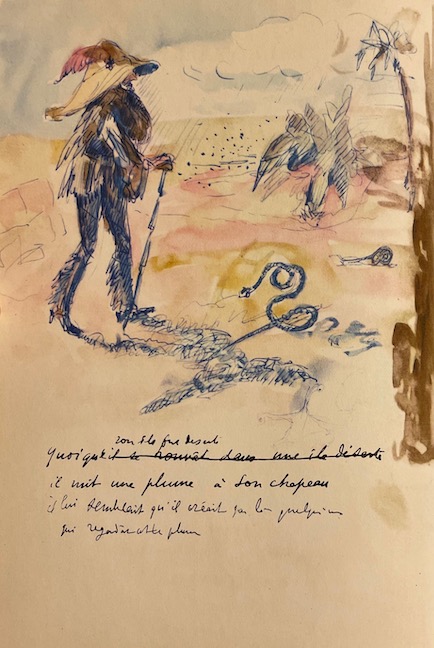 son île fut desert
Quoiqu'il se trouvât dans une île déserte
il mit une plume à son chapeau
il lui semblait qu'il créait par là quelqu'un
qui regardait cette plume